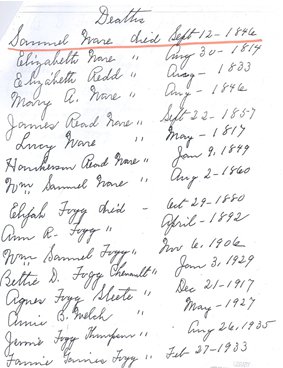 Deaths
Samuel Ware died Sept 12 - 1846
Elizabeth Ware " Aug 30 - 1814
Elizabeth Redd " Aug - 1833
Mary A. Ware " Aug - 1846
James Read Ware " Sept 22 - 1857
Lucy Ware " May - 1817
Henderson Read Ware " Jan 9, 1849
Wm Samuel Ware " Aug 2 - 1860
Elijah Fogg died - Oct 29 - 1880
Ann R. Fogg " April - 1892
Wm Samuel Fogg " Nov 6, 1906
Bettie D. Fogg Chenault " Jan 3, 1929
Agnes Fogg Steele " Dec 21 - 1917
Annie B. Welch " May - 1927
Jennie Fogg Thompson " Aug 26, 1935
Fannie Fogg " Feb 27 - 1933